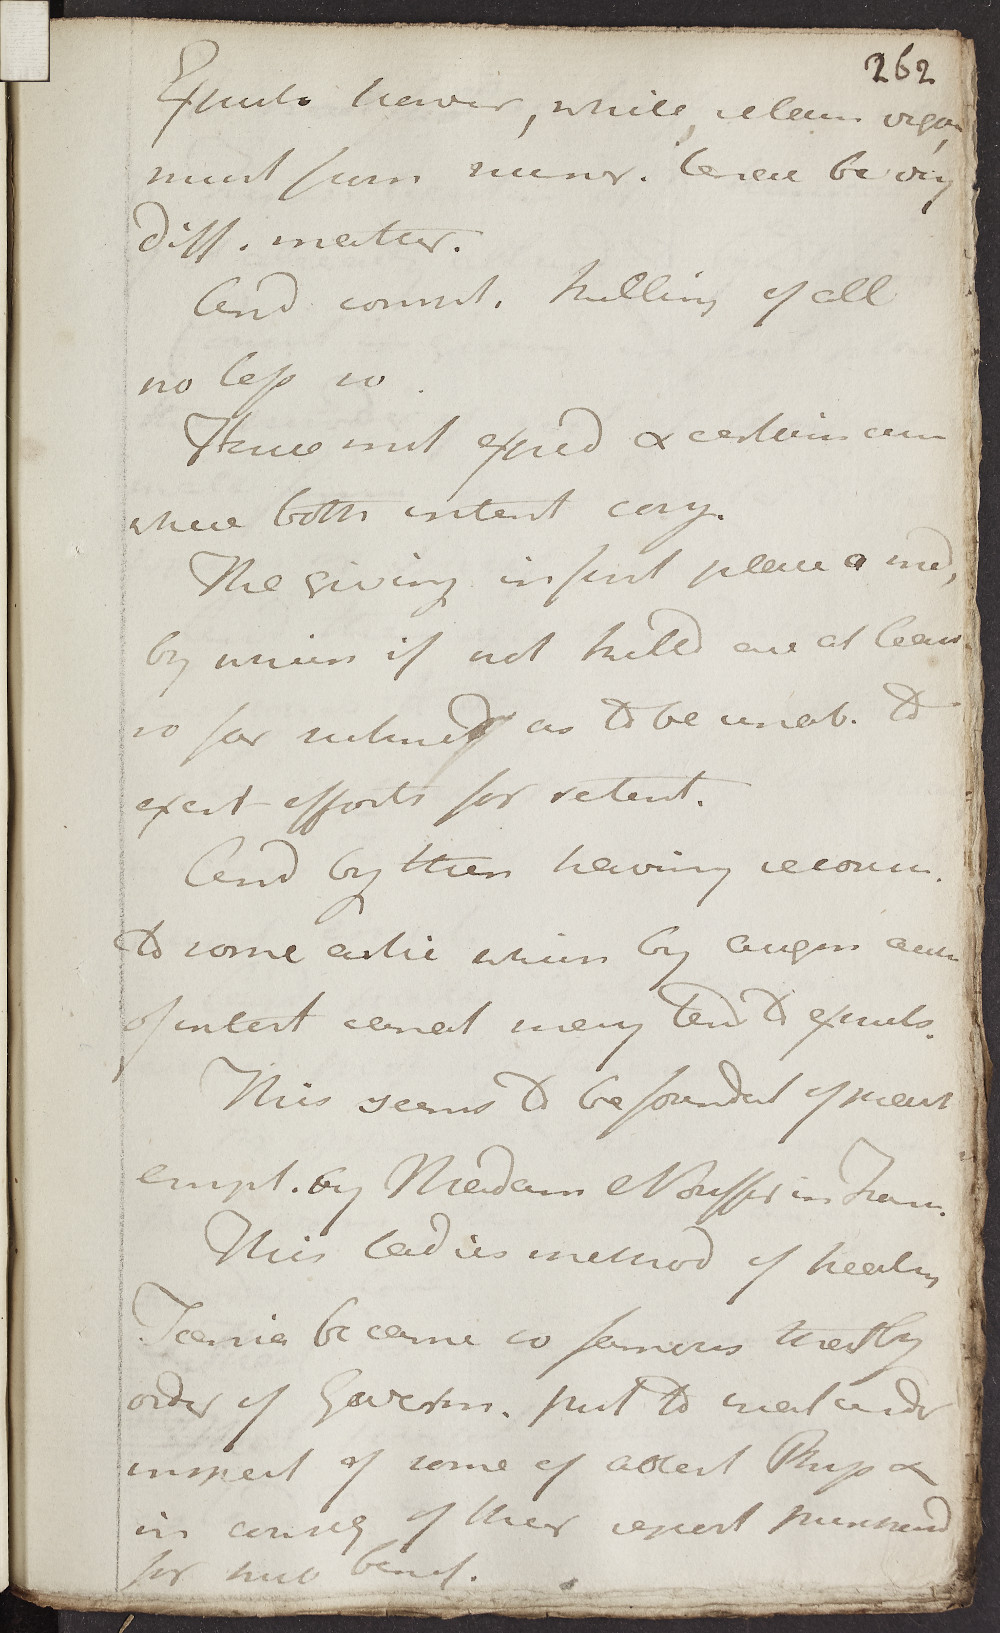 262
Expuls. however, while retain vigour,
must from numr. be very
diff. matter.
And complt. killing of all
no less so.
Hence most exped & certain cure
where both intent conj.
The giving in first place a med,
by which if not killed are at least
so far as to be unab. to
exert efforts for retent.
And by then having recours.
to some active which by augm action
of intest canal may tend to expuls.
This seems to be foundat of treat
empl. by Madam Nouffer in
This ladies method of healing
Taenia became so famous that by
order of Governm. put to trial under
inspect of some of ablest Phys &
in conseq of their report purchased
for pub benef.